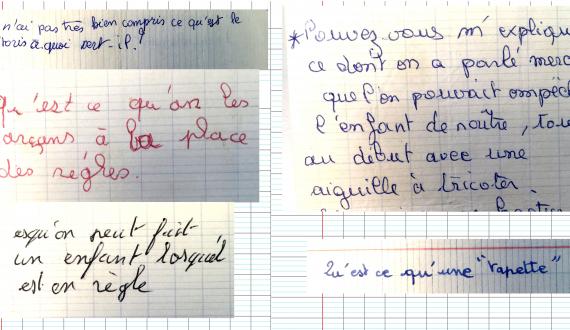 n'ai pas très bien compris ce qu'est le
toris à quoi sert-il.?
Qu'est ce qu'on les
arçons à la place
des règles.
esqu'on peut fait
un enfant lorsqu'il
est en règle
*Pouvez-vous m'explique
ce dont on a parlé merc
que l'on pouvait empêch
l'enfant de naître, tou
au début avec une
aiguille à tricoter.
Qu'est ce qu'une "tapette"